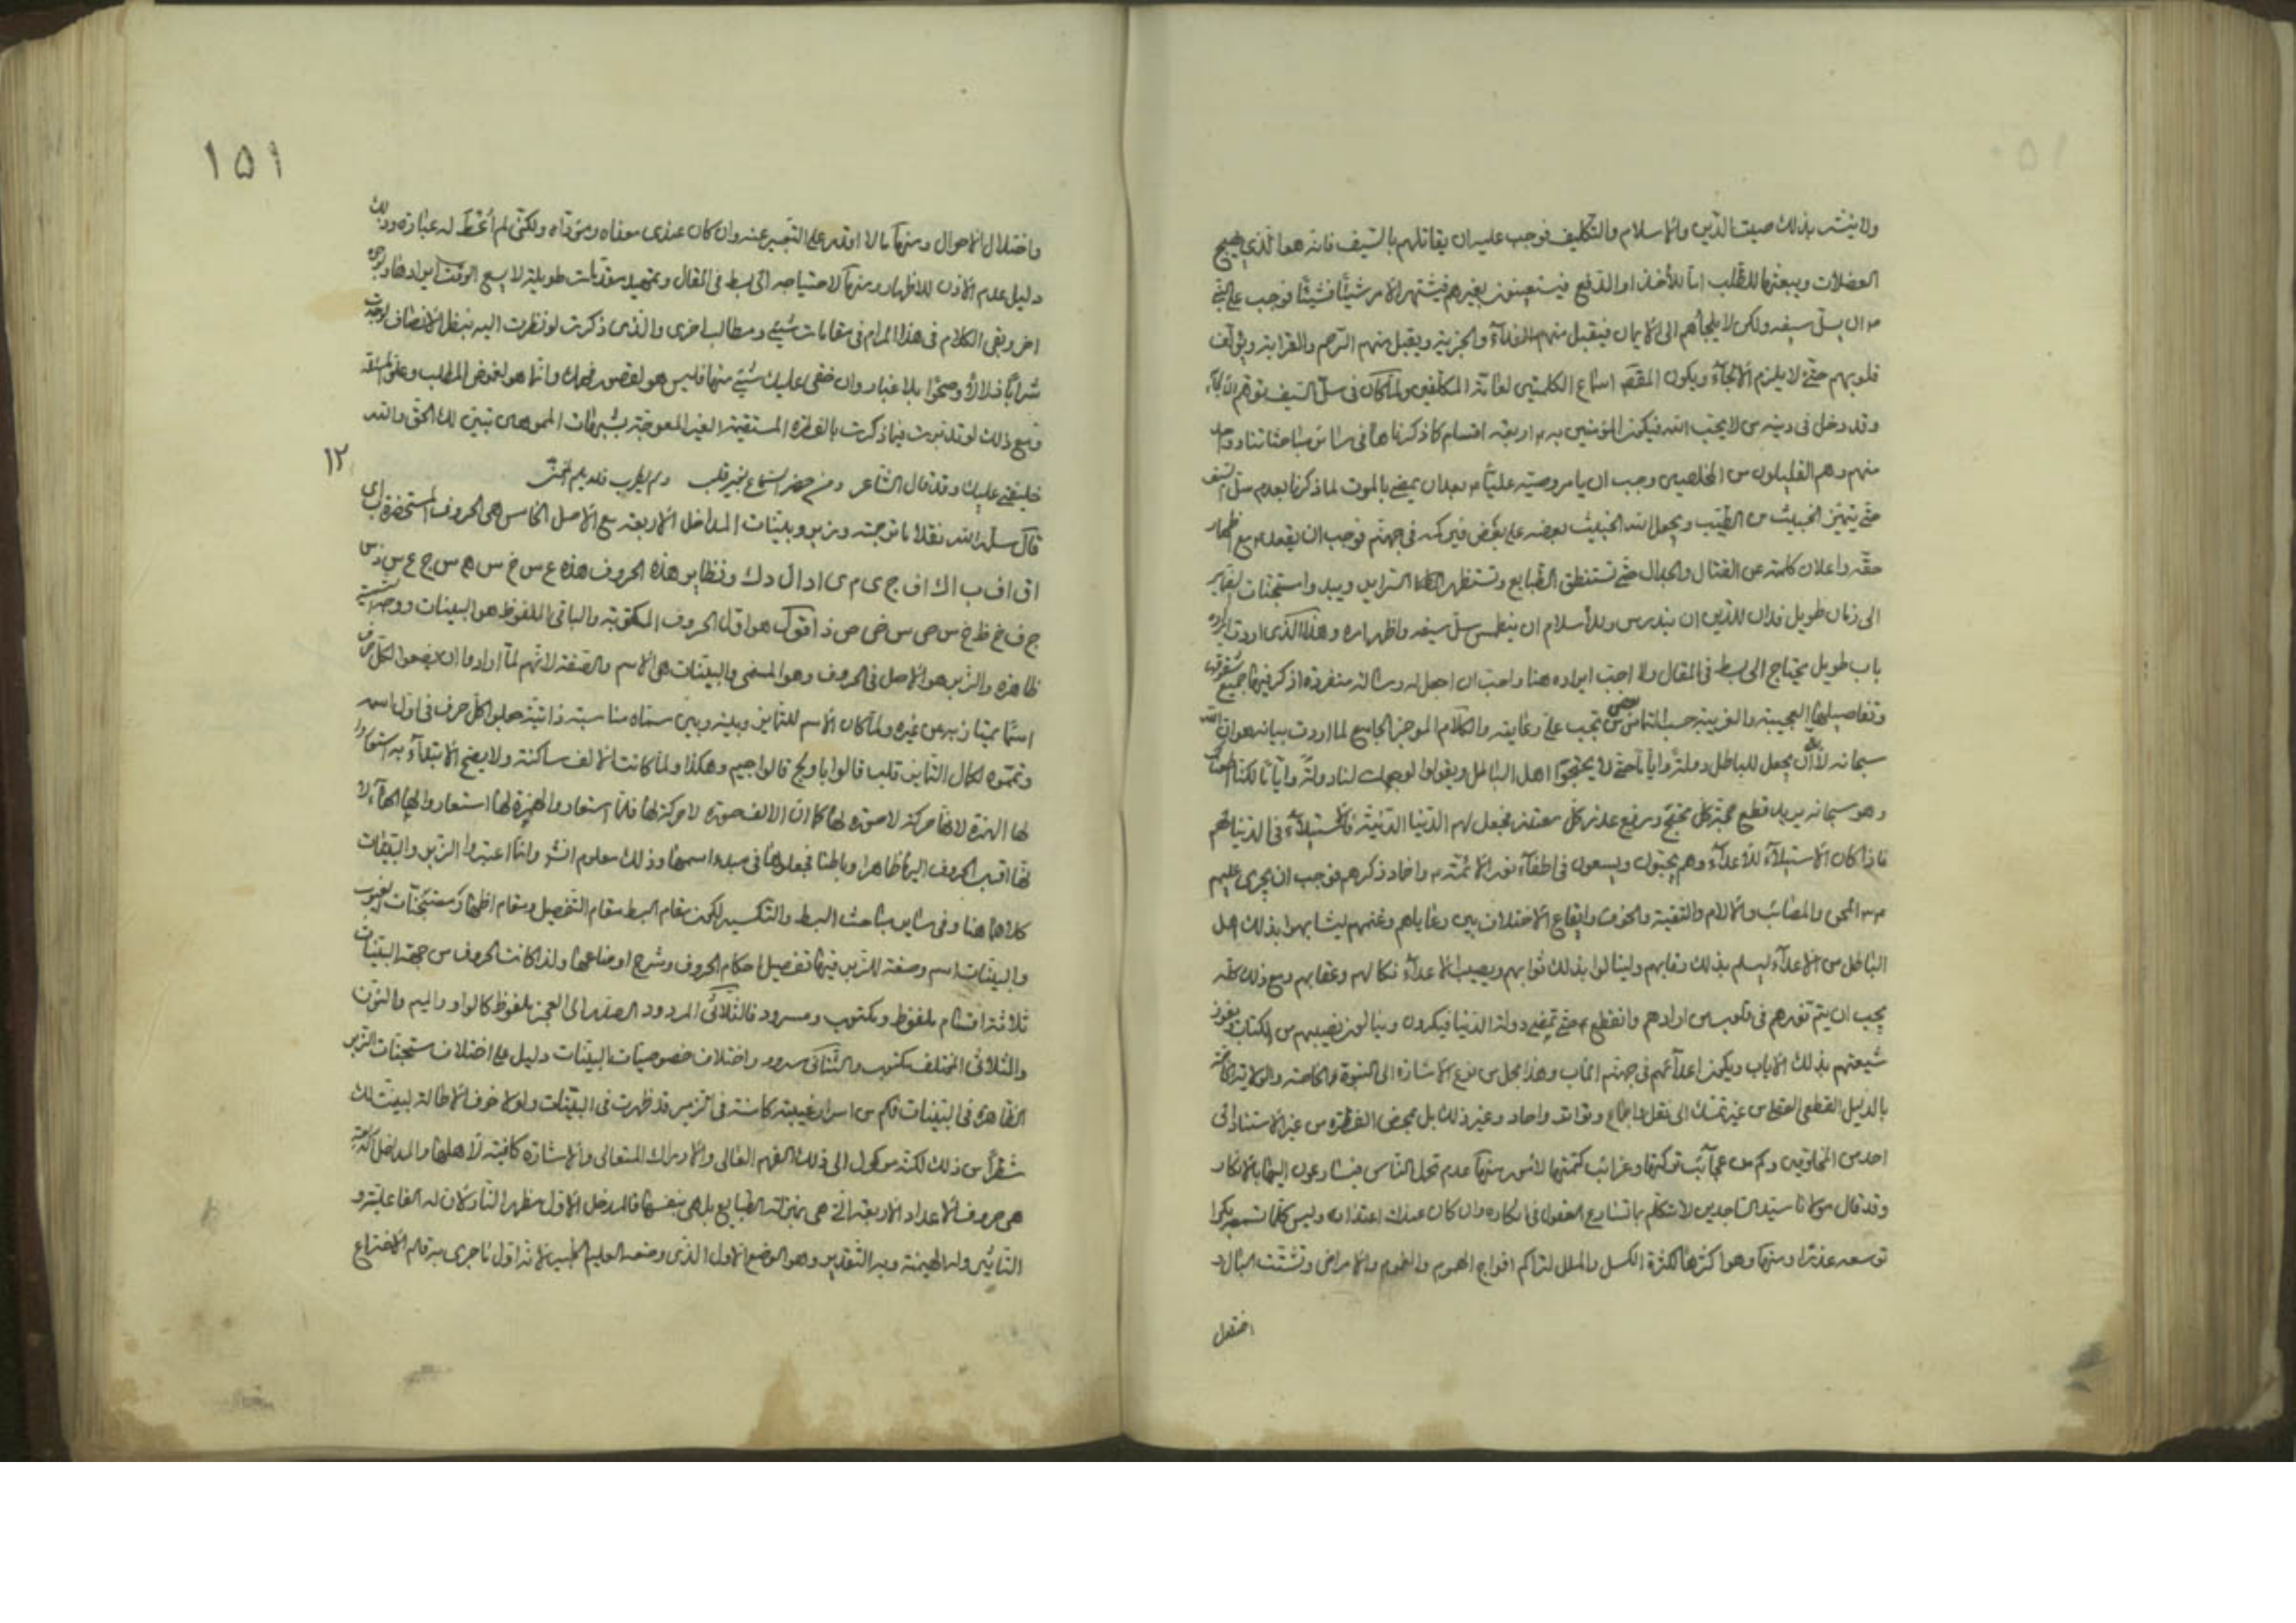 ولا ينتشر بذلك صيت الدين والاسلام والتكليف فوجب عليه ان يقاتلهم بالسيف فانه هو الذي يهيج
العضلات ويبعثها للطلب اما للأخذ او الدفع فيستعينون بغيرهم فيشتهر الامر شيئا فشيئا فوجب على النبي
ص ان يسل سيفه ولكن لا يلجأهم الى الايمان فيقبل منهم الفدآء والجزية ويقبل منهم الترحم والقرابة ويؤلف
قلوبهم حتى لا يلزم الالجآء ويكون المقصود اسماع الكلمتين لعامة المكلفين ولما كان في سل السيف
وقد دخل في دينه من لا يحب الله فيكون المؤمنين به ص اربعة اقسام كما ذكرناها في سائر مباحثاتنا وواحد
منهم وهم القليلون من المخلصين وجب ان يأمر وصيه عليا ع بعد ان يمضي بالموت لما ذكرنا بعدم سل السيف
حتى يتميز الخبيث من الطيب ويجعل الله الخبيث بعضه على بعض فيركمه في جهنم فوجب ان يقعد ع مع اظهار
حقه واعلان كلمته عن القتال والجدال حتى تستنطق الطبايع وتستظهر التزايل ويبدو استجنات الضماير
الى زمان طويل فدان للدين ان يندرس وللأسلام ان ينطمس سل سيفه واظهر امره وهذا الذي اردت ايراده
باب طويل يحتاج الى بسط في المقال ولا احب ايراده هنا واحب ان اجعل له رسالة منفردة اذكر فيها جميع شقوقه
وتفاصيلها العجيبة والغريبة حسب التماس بعض من تجب علي رعايته والكلام الموجز الجامع لما اردت بيانه هو ان الله
سبحانه لا بد ان يجعل للباطل دولة واياما حتى لا يحتجوا اهل الباطل ويقولوا لو جعلت لنا دولة واياما لكنا
وهو سبحانه يريد قطع حجة كل محتج ورفع عذر كل معتذر فجعل لهم الدنيا الدنية فالاستيلآء في الدنيا لهم
فاذا كان الاستيلآء للاعدآء وهم يحبون ويسعون في اطفآء نور الائمة ع واخماد ذكرهم فوجب ان يجري عليهم
ع من المحن والمصائب والالام والتقية والخوف وايقاع الاختلاف بين رعاياهم وغنمهم ليشابهوا بذلك اهل
الباطل من الاعدآء ليسلم بذلك رقابهم ولينالوا بذلك ثوابهم ويصيب الاعدآء نكالهم وعقابهم ومع ذلك كله
يجب ان يتم نورهم في قلوب من ارادهم وانقطع بهم حتى تمضي دولة الدنيا فيكرون وينالون نصيبهم من الكتاب ويفوز
شيعتهم بذلك الاياب ويكون اعدآئهم في جهنم المآب وهذا مجمل من نوع الاشارة الى النبوة والخاصة والولاية
بالدليل القطعي العقلي من غير تمسك الى نقل واجماع وتواتر واحاد وغير ذلك بل بمحض الفطرة من غير الاستناد الى
احد من المخلوقين وكم من عجآئب تركتها وغرائب كتمتها لامور منها عدم تحمل الناس فيتسارعون اليها بالانكار
وقد قال مولانا سيد الساجدين لا تتكلم بما تسارع العقول في انكاره وان كان عندك اعتذاره وليس كلما تسمعه نكرا
توسعه عذرا ومنها وهو اكثرها كثرة الكسل والملل لتراكم افواج الهموم والغموم والامراض وتشتت البال
اختلال
١٥١
واختلال الاحوال ومنها ما لا اقدر على التعبير عنه وان كان عندي معناه ومؤداه ولكني لم اُعْطَ له عبارة وذلك
دليل عدم الاذن للاظهار ومنها لاحتياجه الى بسط في المقال وتمهيد مقدمات طويلة لا يسع الوقت ايرادها
اخر وبقى الكلام في هذا المرام في مقامات شتى ومطالب اخرى والذي ذكرت لو نظرت اليه بنظر الانصاف لوجدت
شرابا زلالا وصحوا بلا غبار وان خفى عليك شيئ منها فليس هو لقصور فهمك وانما هو لغموض المطلب وعلو
ومع ذلك لو تدبرت فيما ذكرت بالفطرة المستقيمة الغير المعوجة بشبهات المموهين تبين لك الحق والله
خليفتي عليك وقد قال الشاعر ومن حضر السماع بغير قلب ولم يطرب فلا يلم المغني
١٢
قال سلمه الله نقلا ما ترجمته وزبر وبينات المداخل الاربعة مع الاصل الخامس هي الحروف المستحضرة
اق اف ب اك اف ج ى م ى اد ال د ك ونظاير هذه الحروف هذه ع س خ س ه م س ج ع س
ج ف خ ظ خ س ص س ض ص ذ اقول هو اول الحروف المكتوبة والباقي الملفوظ هو البينات ووجه التسمية
ظاهره والزبر هو الاصل في الحروف وهو المسمى والبينات هي الاسم والصفة لانهم لما ارادوا ان يضعوا لكل حرف
اسما يمتاز به عن غيره ولما كان الاسم للتمايز وبينه وبين مسماه مناسبة ذاتية جعلوا كل حرف في اول اسمه
وتمموه لكمال التمايز قلب قالوا با وبج قالوا جيم وهكذا ولما كانت الالف ساكنة ولا يصح الابتدآء به استعاروا
لها الهمزة لانها حركة لا صورة لها كما ان الالف صورة لا حركة لها فلما استعاروا الهمزة لها استعاروا لها الهآء لا
نها اقرب الحروف اليها ظاهرا وباطنا فجعلوها في مبدء اسمها وذلك معلوم انشر وانما اعتبروا الزبر والبينات
كلاهما هنا وفي سائر مباحث البسط والتكسير لكون مقام البسط مقام التفصيل ومقام اظهار مستجنات الغيوب
والبينات اسم وصفة للزبر فيها تفصيل احكام الحروف وشرح اوضاعها ولذا كانت الحروف من جهة البينات
ثلاثة اقسام ملفوظ ومكتوب ومسرود فالثلاثي المردود الصدر الى العجز ملفوظ كالواو والميم والنون
والثلاثي المختلف مكتوب والثنائي مسرود واختلاف خصوصيات البينات دليل على اختلاف مستجنات الزبر
الظاهرة في البينات فكم من اسرار غيبية كامنة في الزبر قد ظهرت في البينات ولولا خوف الاطالة لبينت لك
شطرا من ذلك لكنه موكول الى ذلك الفهم العالي والادراك المتعالي والاشارة كافية لاهلها والمداخل الاربعة
هي حروف الاعداد الاربعة التي هي بمنزلة الطبايع بل هي بنفسها فالمدخل الاول مظهر النار لان له الفاعلية و
التأثير وله الهيمنة وبه التقدير وهو الوضع الاول الذي وضعه العليم الحكيم لانه اول ما جرى به قلم الاختراع